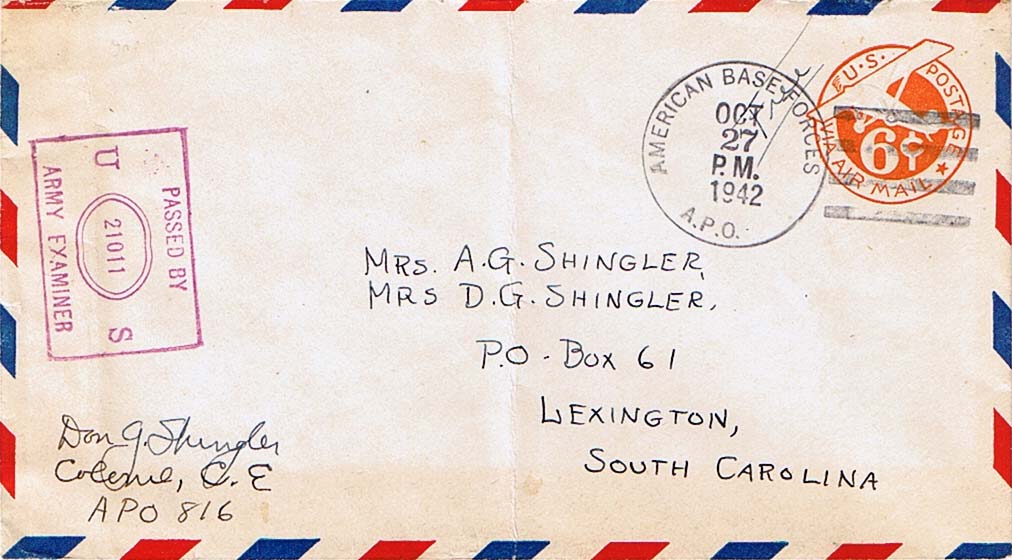 PASSED BY
U 21011 S
ARMY EXAMINER
AMERICAN BASE FORCES
OCT
27
P.M.
1942
A.P.O.
U.S. POSTAGE
6¢
VIA AIR MAIL
MRS. A.G. SHINGLER,
MRS D.G. SHINGLER,
P.O - BOX 61
LEXINGTON,
SOUTH CAROLINA
Don G. Shingler
Colonel, C.E
APO 816